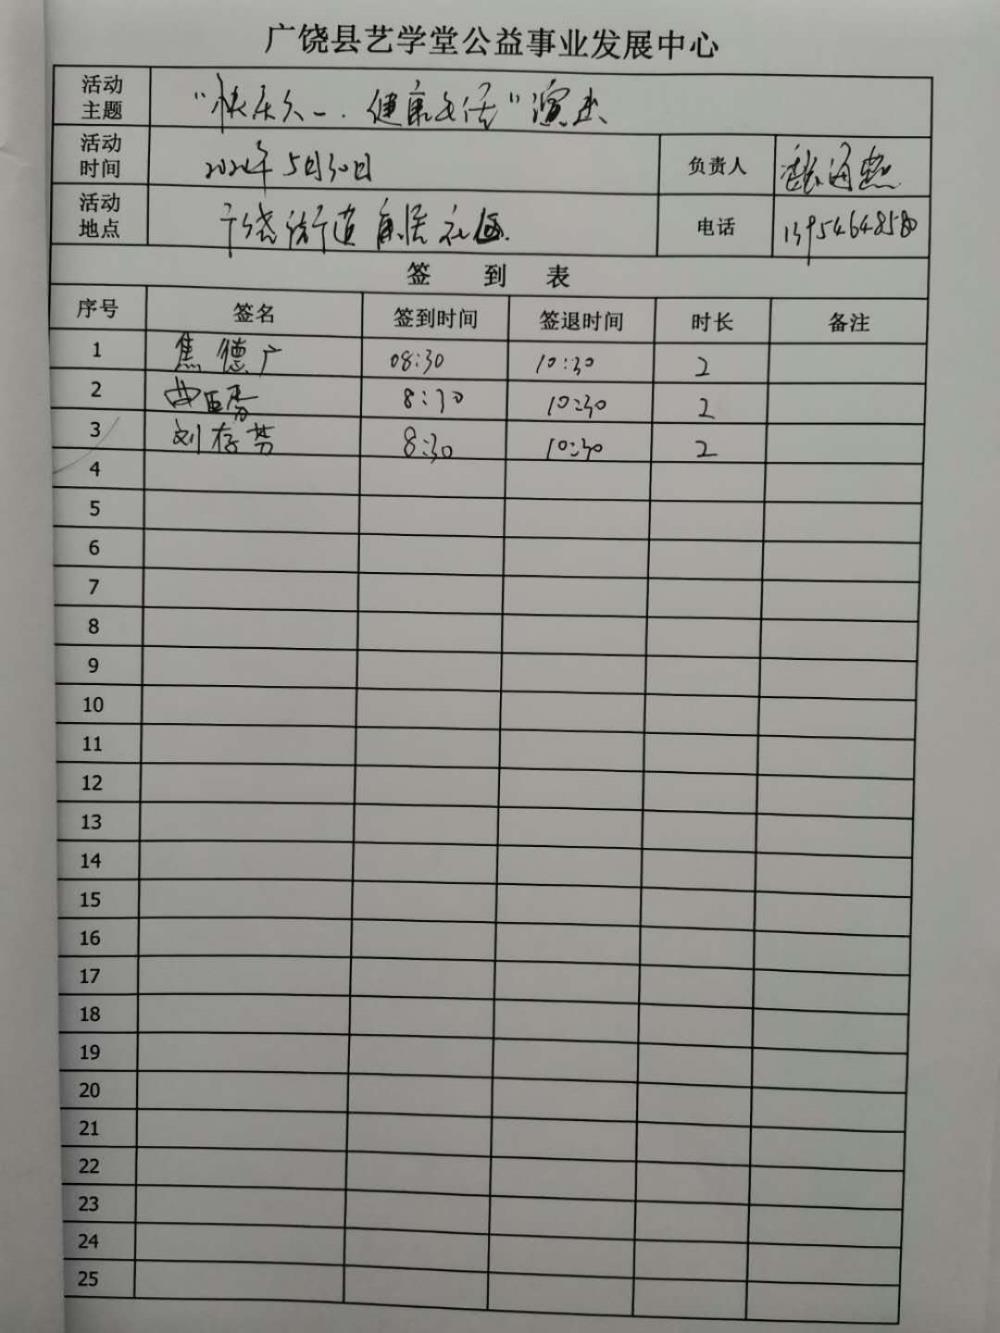 广饶县艺学堂公益事业发展中心
活动主题 "快乐六一.健康生活"演出
活动时间 2024年5月30日 负责人
活动地点 广饶街道康居社区 电话 13954648580
签到表
序号 签名 签到时间 签退时间 时长 备注
1 焦德广 08:30 10:30 2
2 8:30 10:30 2
3 刘存芳 8:30 10:30 2
4
5
6
7
8
9
10
11
12
13
14
15
16
17
18
19
20
21
22
23
24
25